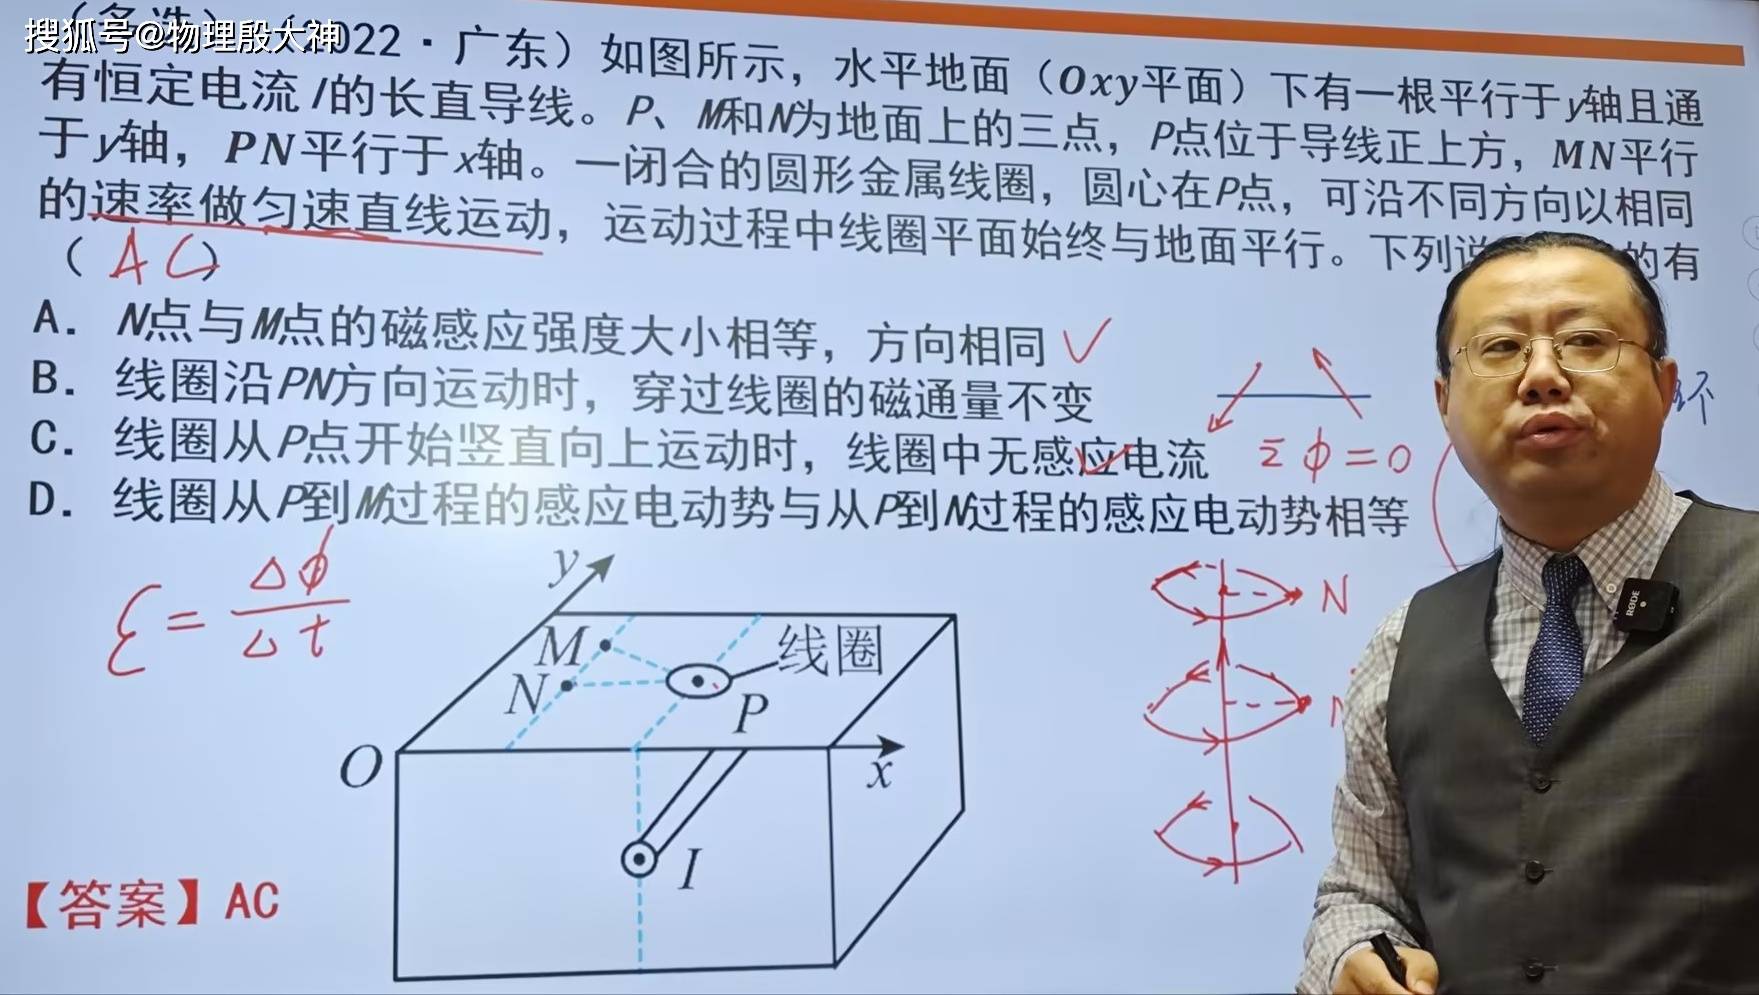 搜狐号@物理殷大神
(多选)(2022·广东)如图所示，水平地面（Oxy平面）下有一根平行于y轴且通
有恒定电流I的长直导线。P、M和N为地面上的三点，P点位于导线正上方，MN平行
于y轴，PN平行于x轴。一闭合的圆形金属线圈，圆心在P点，可沿不同方向以相同
的速率做匀速直线运动，运动过程中线圈平面始终与地面平行。下列说 的有
（ AC ）
A. N点与M点的磁感应强度大小相等，方向相同
B. 线圈沿PN方向运动时，穿过线圈的磁通量不变
C. 线圈从P点开始竖直向上运动时，线圈中无感应电流
Σφ=0
D. 线圈从P到M过程的感应电动势与从P到N过程的感应电动势相等
ε=Δφ/Δt
y
M
N
线圈
P
O
x
I
N
【答案】AC
RODE